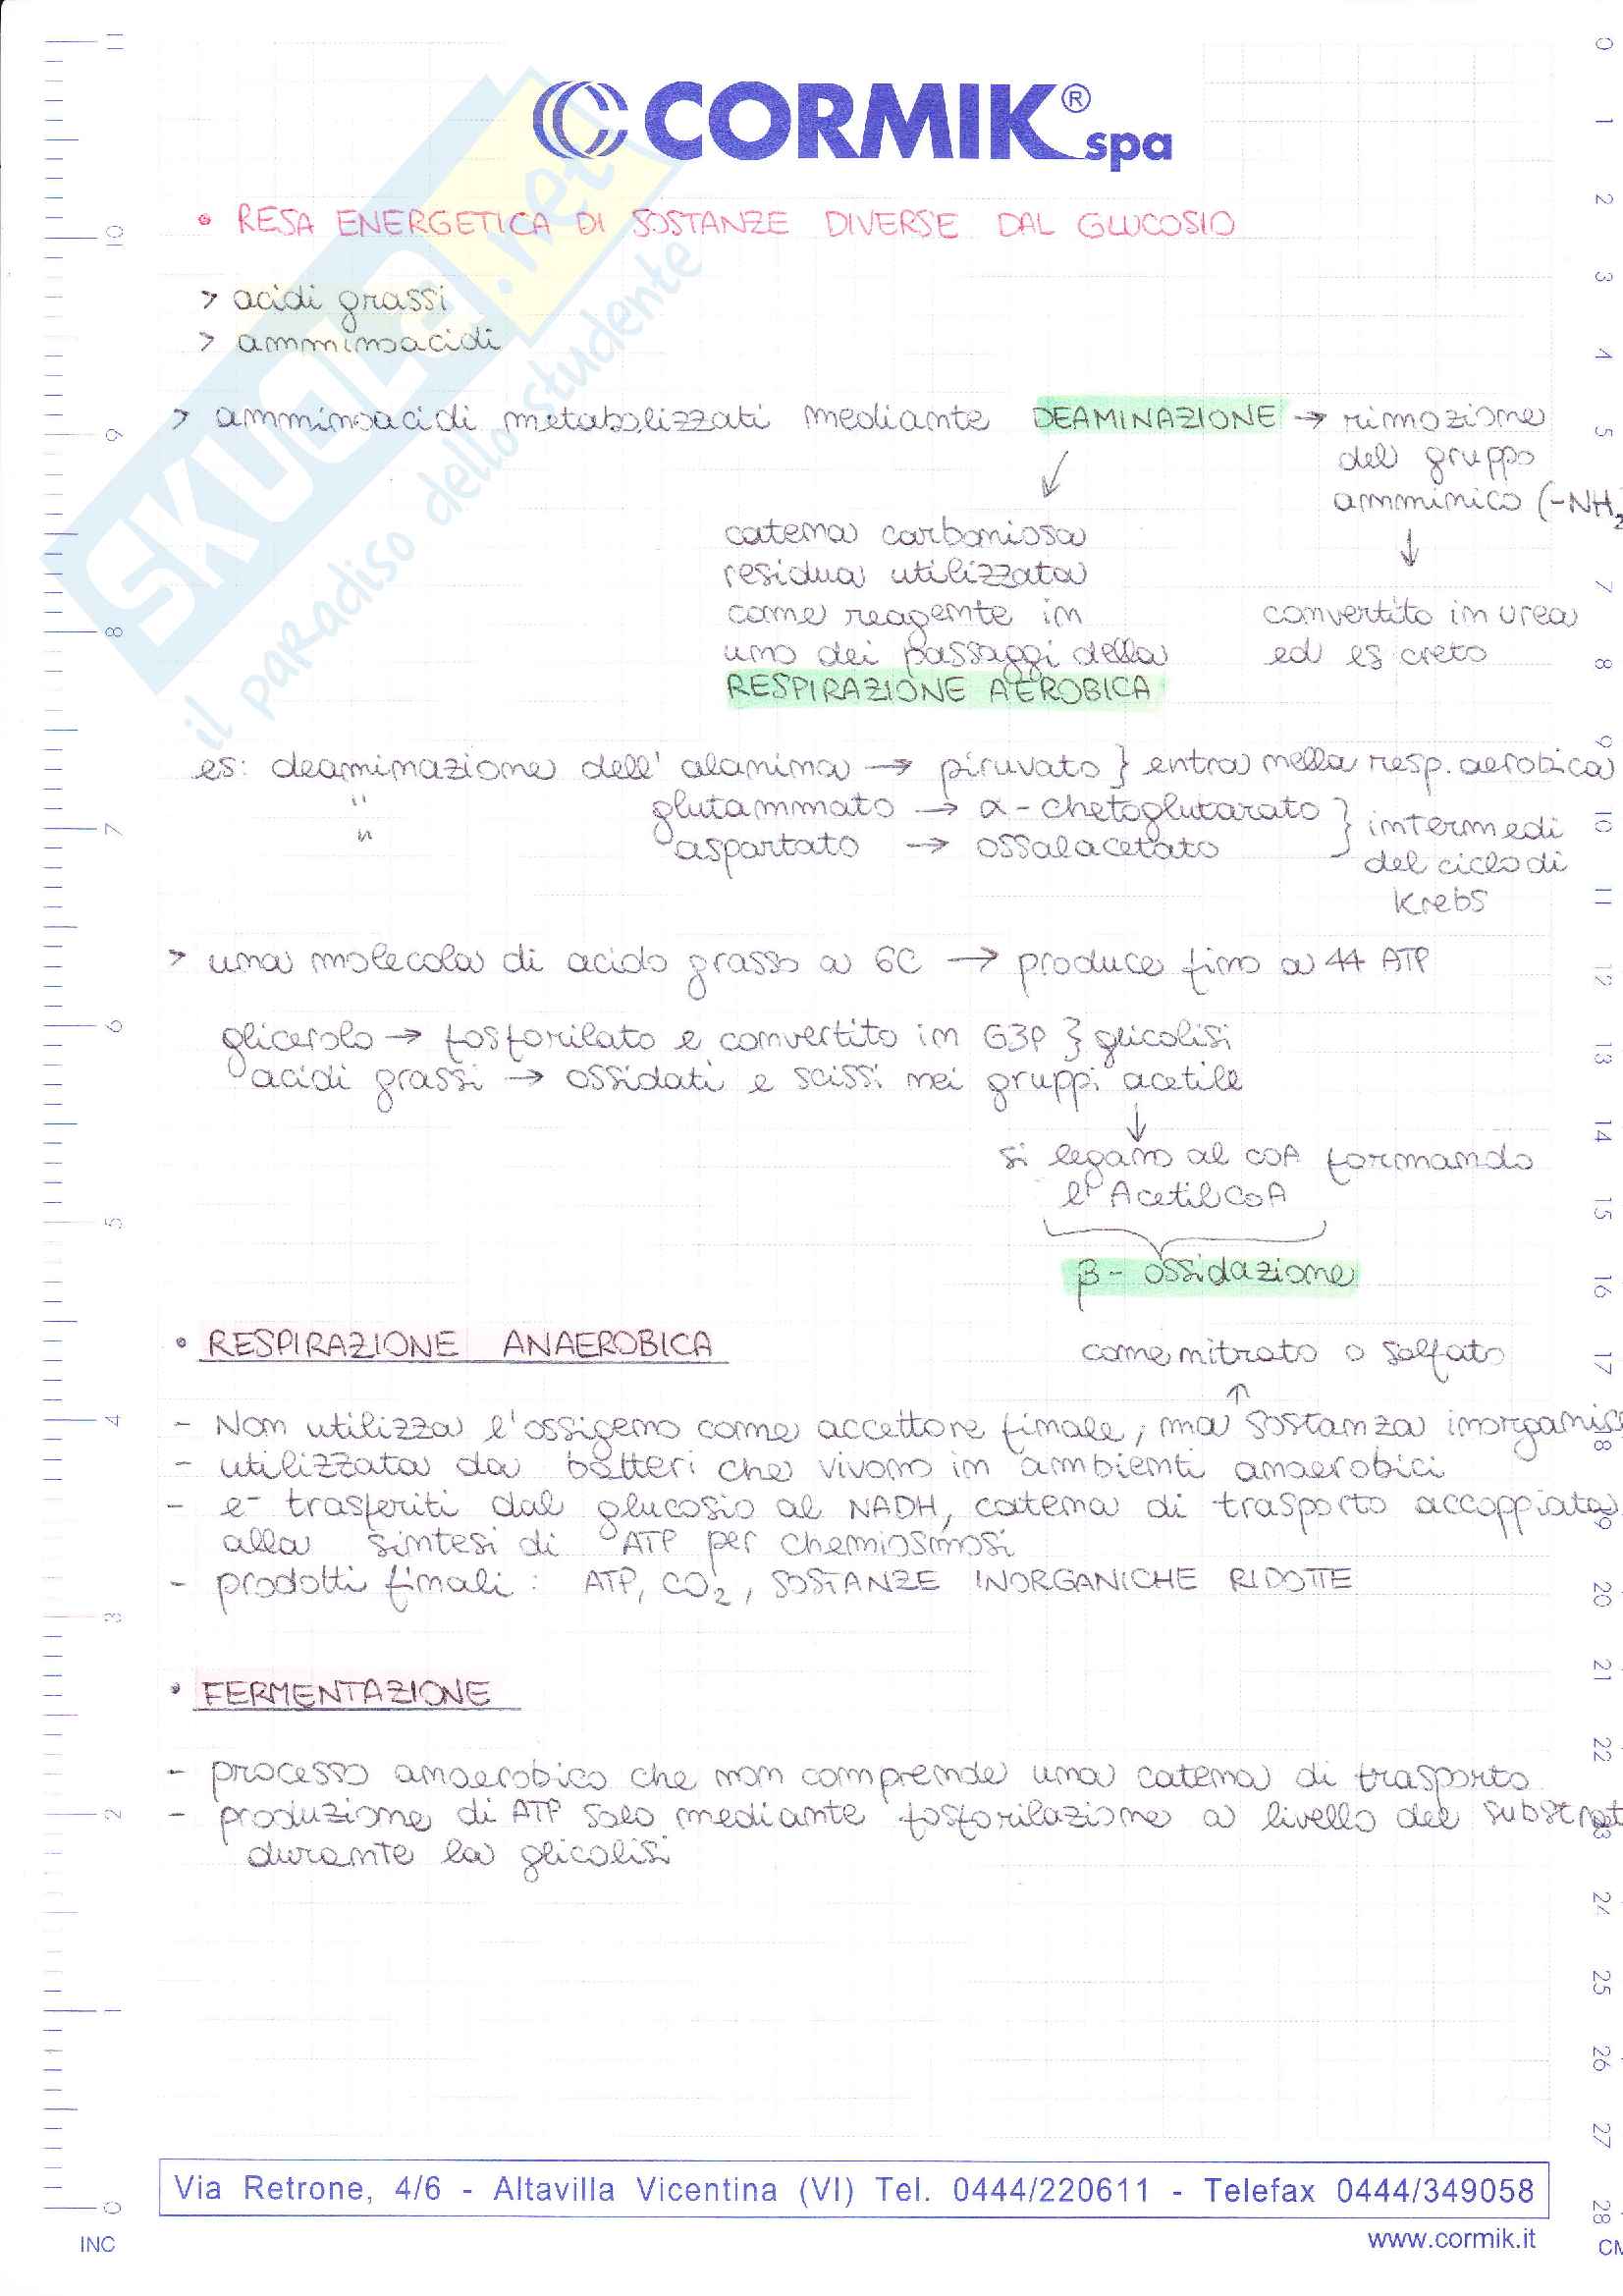 CORMIK® spa
• RESA ENERGETICA DI SOSTANZE DIVERSE DAL GLUCOSIO
> acidi grassi
> amminoacidi
> amminoacidi metabolizzati mediante DEAMINAZIONE → rimozione
del gruppo
amminico (-NH2
↓
convertito in urea
ed escreto
catena carboniosa
residua utilizzata
come reagente in
uno dei passaggi della
RESPIRAZIONE AEROBICA
es: deaminazione dell' alanina → piruvato } entra nella resp. aerobica
" glutammato → α-chetoglutarato } intermedi
" aspartato → ossalacetato
del ciclo di
Krebs
> una molecola di acido grasso a 6C → produce fino a 44 ATP
glicerolo → fosforilato e convertito in G3P } glicolisi
acidi grassi → ossidati e scissi nei gruppi acetile
↓
si legano al coA formando
l' Acetil CoA
β- ossidazione
• RESPIRAZIONE ANAEROBICA
come nitrato o solfato
↑
- Non utilizza l'ossigeno come accettore finale, ma sostanza inorganic
- utilizzata da batteri che vivono in ambienti anaerobici
- e- trasferiti dal glucosio al NADH, catena di trasporto accoppiata
alla sintesi di ATP per chemiosmosi
- prodotti finali: ATP, CO2, SOSTANZE INORGANICHE RIDOTTE
• FERMENTAZIONE
- processo anaerobico che non comprende una catena di trasporto
- produzione di ATP solo mediante fosforilazione a livello del substrat
durante la glicolisi
Via Retrone, 4/6 - Altavilla Vicentina (VI) Tel. 0444/220611 - Telefax 0444/349058
www.cormik.it
INC
CM
SKUOLA.net
il paradiso dello studente
11
10
9
8
7
6
5
4
3
2
1
0
0
1
2
3
4
5
7
8
9
10
11
12
13
14
15
16
17
18
19
20
21
22
23
24
25
26
27
28